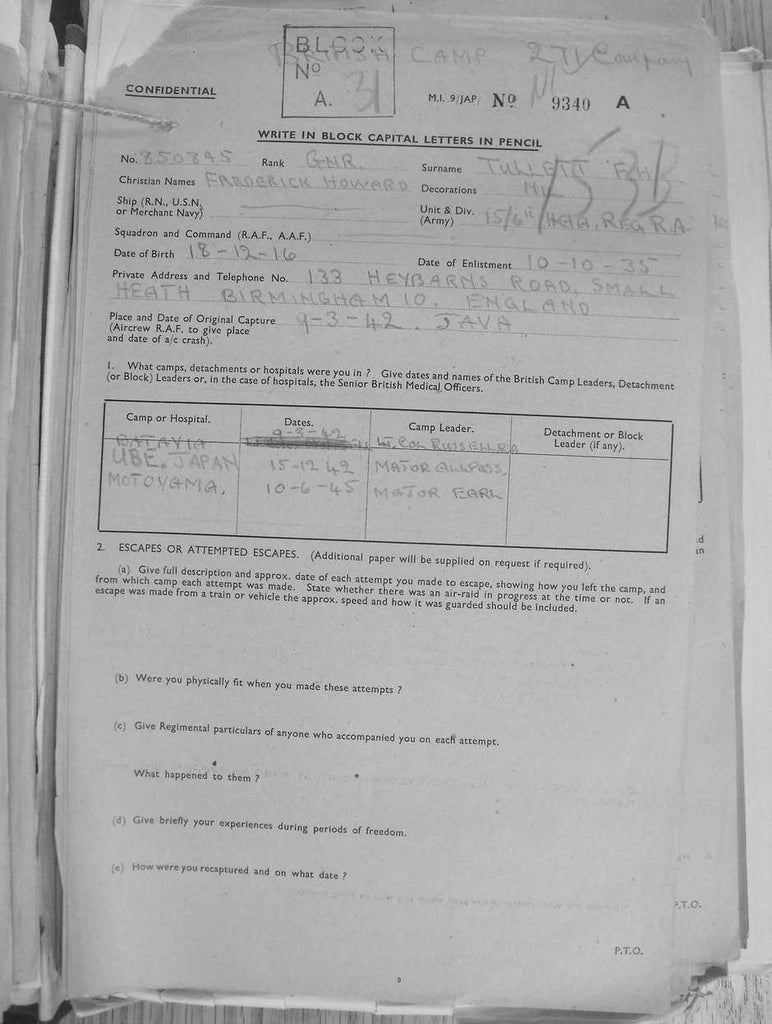 BLOCK
No
A. 31
CAMP 271 Company
CONFIDENTIAL
M.I. 9/JAP/ No 9340 A
WRITE IN BLOCK CAPITAL LETTERS IN PENCIL
No. 850845 Rank GNR. Surname TULLETT F.H.
Christian Names FREDERICK HOWARD Decorations NIL
Ship (R.N., U.S.N. or Merchant Navy)
Unit & Div. (Army) 15/6TH H.A.A. REG R.A
Squadron and Command (R.A.F., A.A.F.)
Date of Birth 18-12-16 Date of Enlistment 10-10-35
Private Address and Telephone No. 133 HEYBARNS ROAD, SMALL
HEATH BIRMINGHAM 10. ENGLAND
Place and Date of Original Capture 9-3-42. JAVA
(Aircrew R.A.F. to give place
and date of a/c crash).
1. What camps, detachments or hospitals were you in ? Give dates and names of the British Camp Leaders, Detachment
(or Block) Leaders or, in the case of hospitals, the Senior British Medical Officers.
Camp or Hospital. Dates. Camp Leader. Detachment or Block Leader (if any).
BATAVIA 9-3-42 LT. COL RUSSELL RA
UBE. JAPAN 15-12 42 MAJOR ALLPASS.
MOTOYAMA. 10-6-45 MAJOR EARL
2. ESCAPES OR ATTEMPTED ESCAPES. (Additional paper will be supplied on request if required).
(a) Give full description and approx. date of each attempt you made to escape, showing how you left the camp, and
from which camp each attempt was made. State whether there was an air-raid in progress at the time or not. If an
escape was made from a train or vehicle the approx. speed and how it was guarded should be included.
(b) Were you physically fit when you made these attempts ?
(c) Give Regimental particulars of anyone who accompanied you on each attempt.
What happened to them ?
(d) Give briefly your experiences during periods of freedom.
(e) How were you recaptured and on what date ?
P.T.O.
P.T.O.